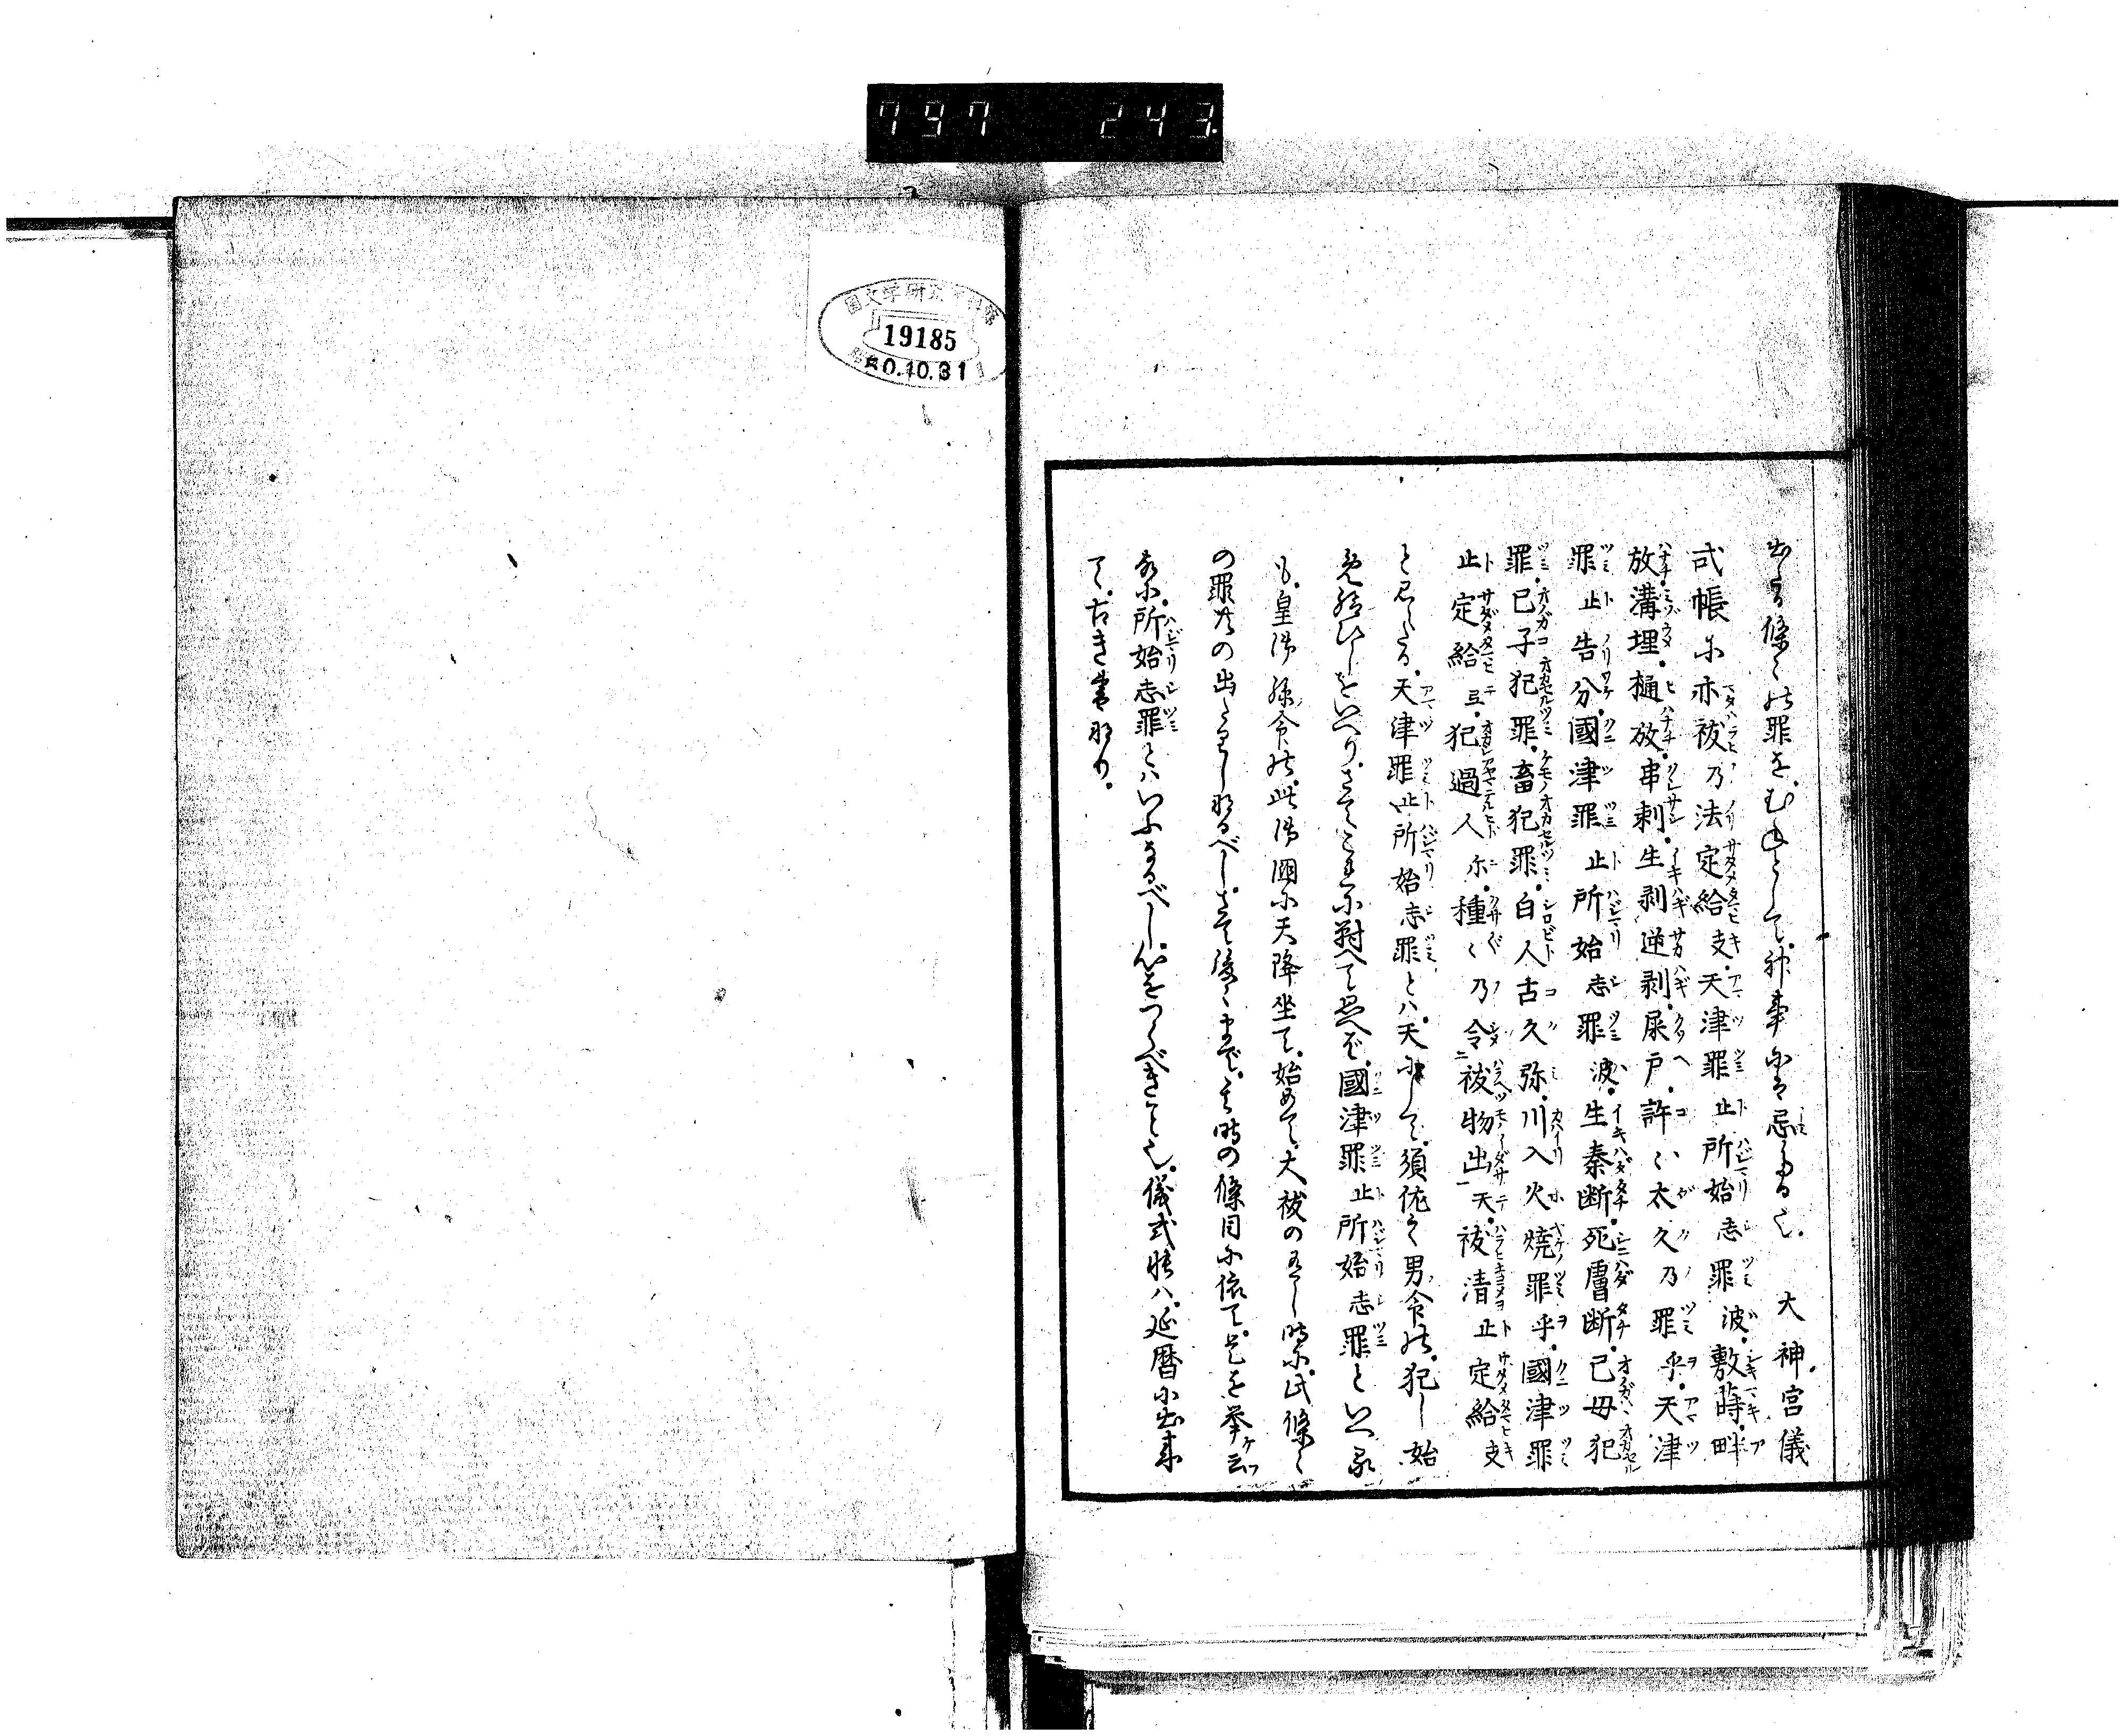 797 243
出たる條々の罪を、むねとして、神事にも忌たる也、大神宮儀
式帳に亦祓乃法定給支、天津罪止所始志罪波、敷蒔、畔
放、溝埋、樋放、串刺、生剥、逆剥、屎戸、許々太久乃罪乎、天津
罪止告分、國津罪止所始志罪波、生秦断、死膚断、己母犯
罪、己子犯罪、畜犯罪、白人、古久弥、川入、火燒罪乎、國津罪
止定給弖、犯過人尓、種々乃令祓物出天、祓清止定給支
と見えたる、天津罪止所始志罪とハ、天にして、須佐之男命の、犯し始
め給ひしをいへり、さてこれに對へて思へば、國津罪止所始志罪といへる
も、皇御孫命の、此御國に天降坐て、始めて、大祓の有し時に、此條々
の罪共の出たりしなるべし、さて後々まで、其時の條目に依て、是を挙ケ云フ
故に、所始志罪とハいふなるべし、心をつくべきこと也、儀式帳ハ、延暦に出来
て、古き書なり、
国文学研究資料館
19185
昭50.10.31